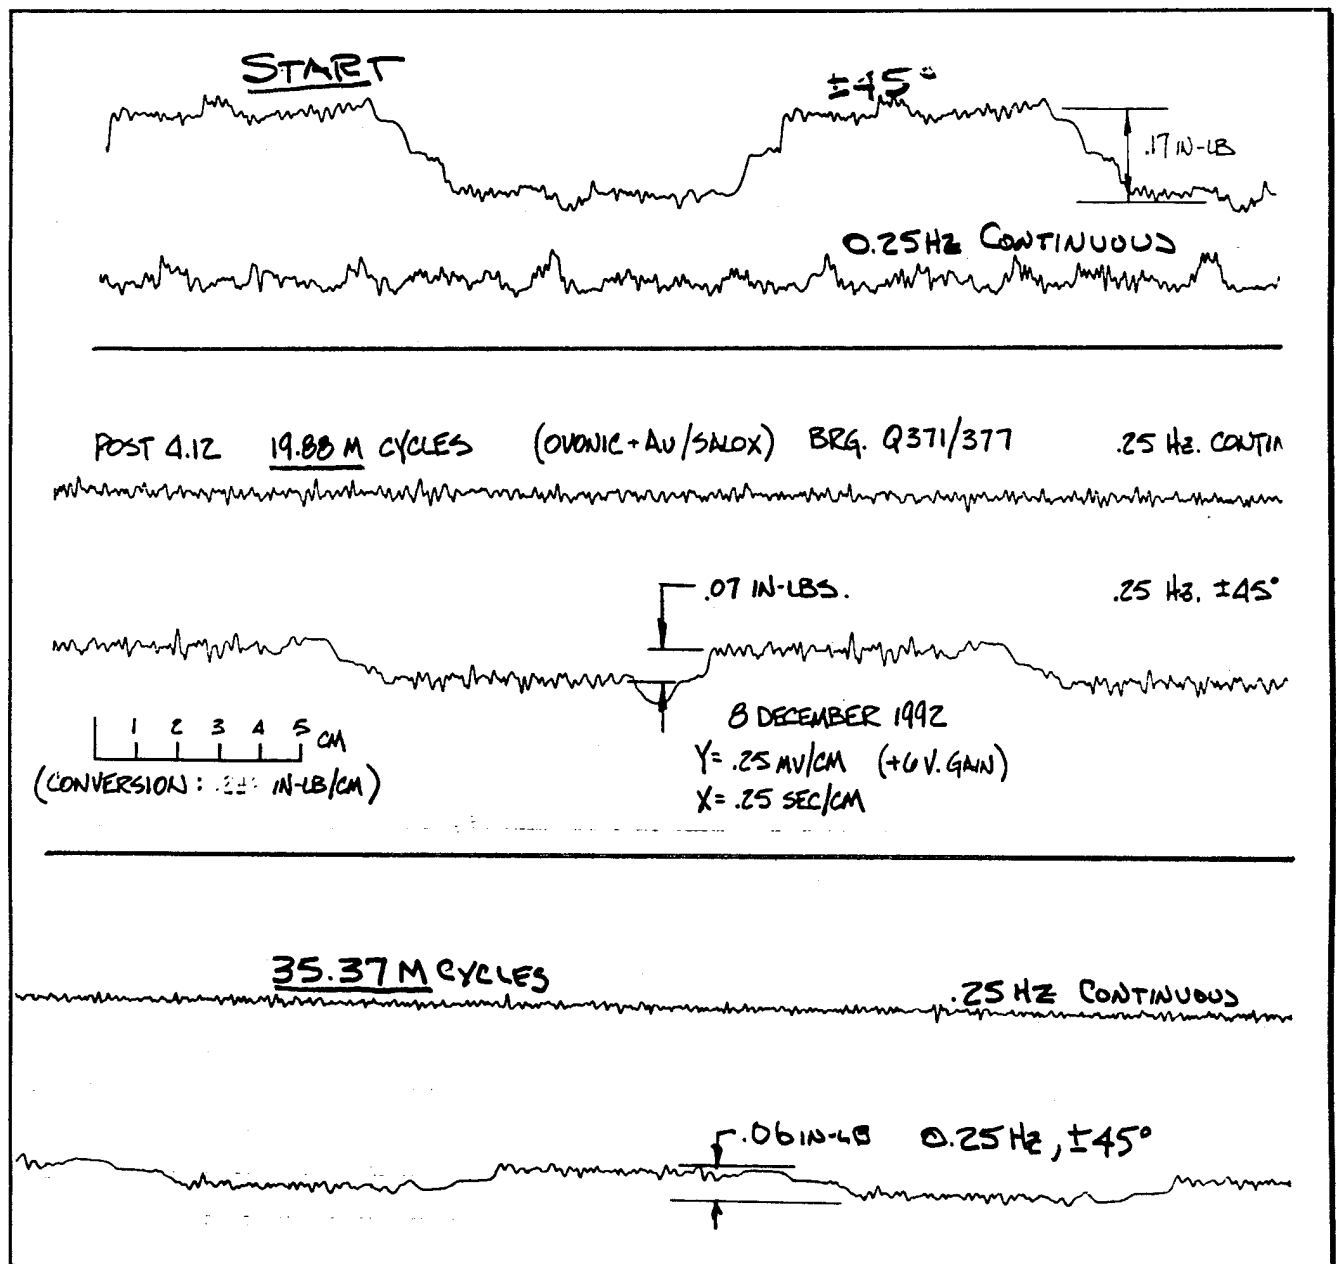 START
±45°
.17 IN-LB
0.25 Hz CONTINUOUS
POST 4.12 19.88 M CYCLES (OVONIC + AU/SALOX) BRG. Q371/377 .25 Hz. CONTIN
.07 IN-LBS.
.25 Hz. ±45°
1 2 3 4 5 CM
(CONVERSION: IN-LB/CM)
8 DECEMBER 1992
Y= .25 MV/CM (+6 V. GAIN)
X= .25 SEC/CM
35.37 M CYCLES
.25 HZ CONTINUOUS
.06 IN-LB 0.25 Hz, ±45°